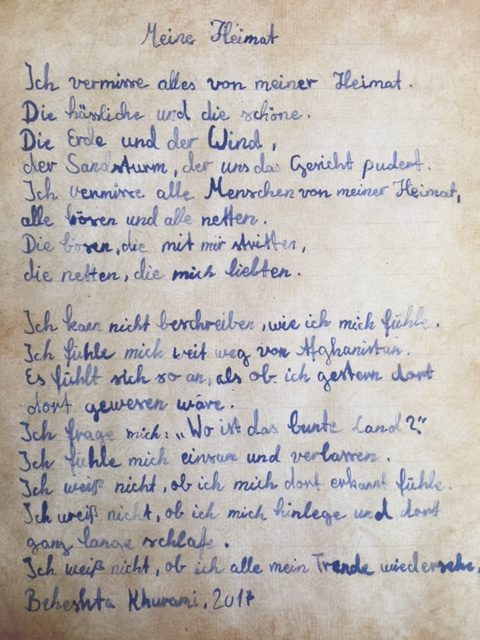 Meine Heimat
Ich vermisse alles von meiner Heimat.
Die hässliche und die schöne.
Die Erde und der Wind,
der Sandsturm, der uns das Gesicht pudert.
Ich vermisse alle Menschen von meiner Heimat,
alle bösen und alle netten.
Die bösen, die mit mir stritten,
die netten, die mich liebten.
Ich kann nicht beschreiben, wie ich mich fühle.
Ich fühle mich weit weg von Afghanistan.
Es fühlt sich so an, als ob ich gestern dort
dort gewesen wäre.
Ich frage mich: „Wo ist das bunte Land?"
Ich fühle mich einsam und verlassen.
Ich weiß nicht, ob ich mich dort erkannt fühle.
Ich weiß nicht, ob ich mich hinlege und dort
ganz lange schlafe.
Ich weiß nicht, ob ich alle mein wiedersehe,
Beheshta Khurami, 2017